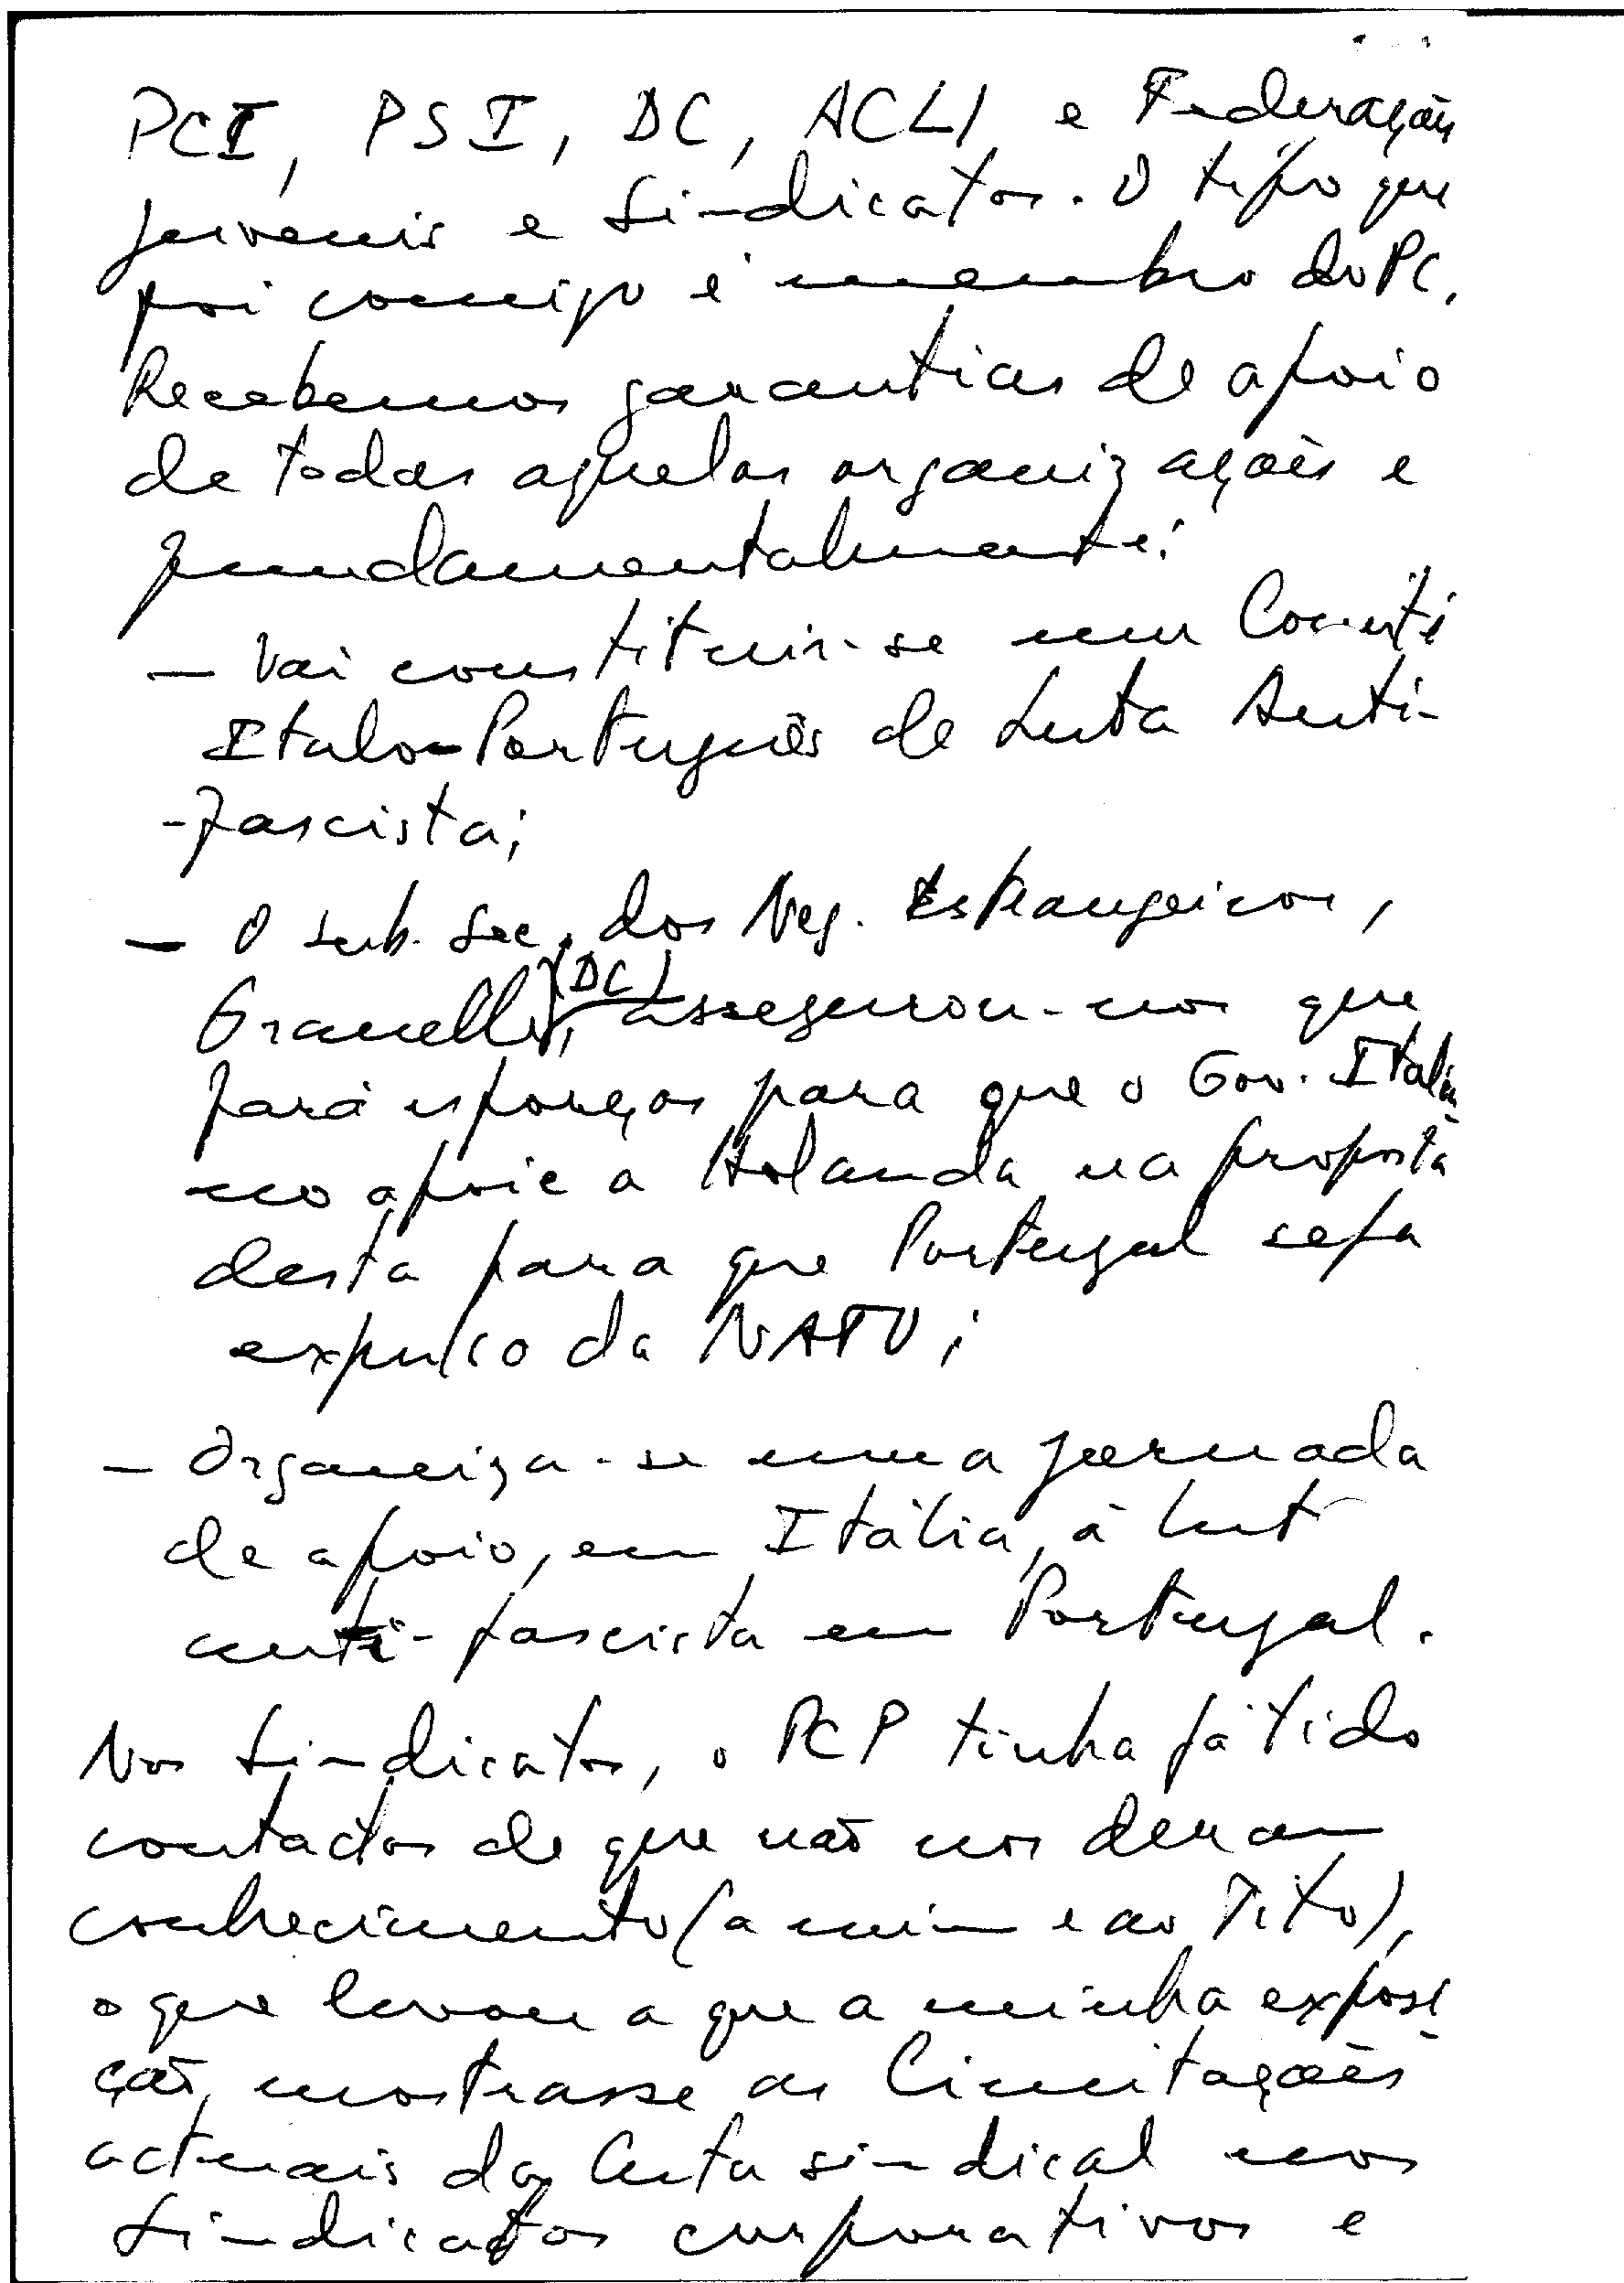 PCI, PSI, DC, ACLI e Federações
juvenis e Sindicatos. O tipo que
foi comigo é membro do PC.
Recebemos garantias de apoio
de todas aquelas organizações e
fundamentalmente:
— Vai constituir-se um Comité
Italo-Português de Luta Anti-
-fascista;
— O sub. Sec. dos Neg. Estrangeiros,
Granelli (DC), assegurou-nos que
fará esforços para que o Gov. Italia
no apoie a Holanda na proposta
desta para que Portugal seja
expulso da NATO;
— Organiza-se uma jornada
de apoio, em Itália, à lut
anti-fascista em Portugal.
Nos Sindicatos, o PCP tinha já tido
contactos de que não nos deram
conhecimento (a mim e ao Tito),
o que levou a que a minha exposi
ção, mostrasse as limitações
actuais da luta sindical nos
Sindicatos corporativos e